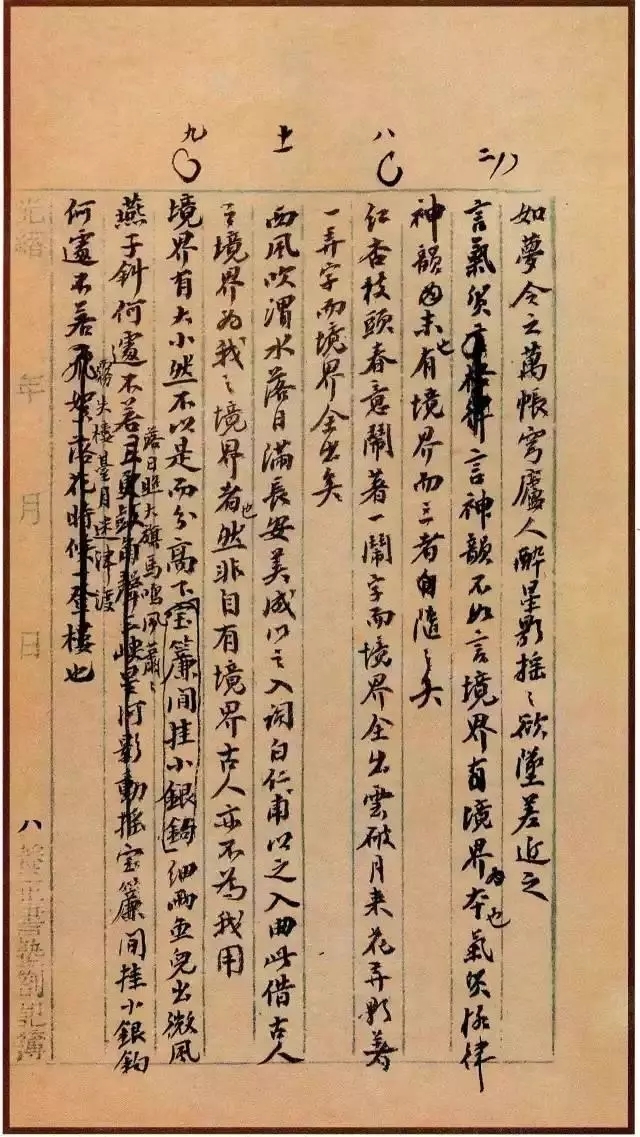 如夢令之萬帳穹廬人醉星影搖〻欲墜差近之
言氣質言格律言神韻不如言境界有境界為本也氣質格律
神韻末也有境界而三者自隨之矣
八
紅杏枝頭春意鬧著一鬧字而境界全出雲破月來花弄影著
一弄字而境界全出矣
十一
西風吹渭水落日滿長安美成以之入詞白仁甫以之入曲此借古人
之境界為我〻境界者也然非自有境界古人亦不為我用
九
境界有大小然不以是而分高下宝簾间挂小銀鉤細雨魚兒出微風
燕子斜何遽不若五更鼓角聲三峽星河影動搖宝簾间挂小銀鉤
落日照大旗馬鳴風蕭〻
何遽不若飛絮落花時候一登樓也
霧失樓臺月迷津渡
光緒 年 月 日
八 養正書塾劄記簿